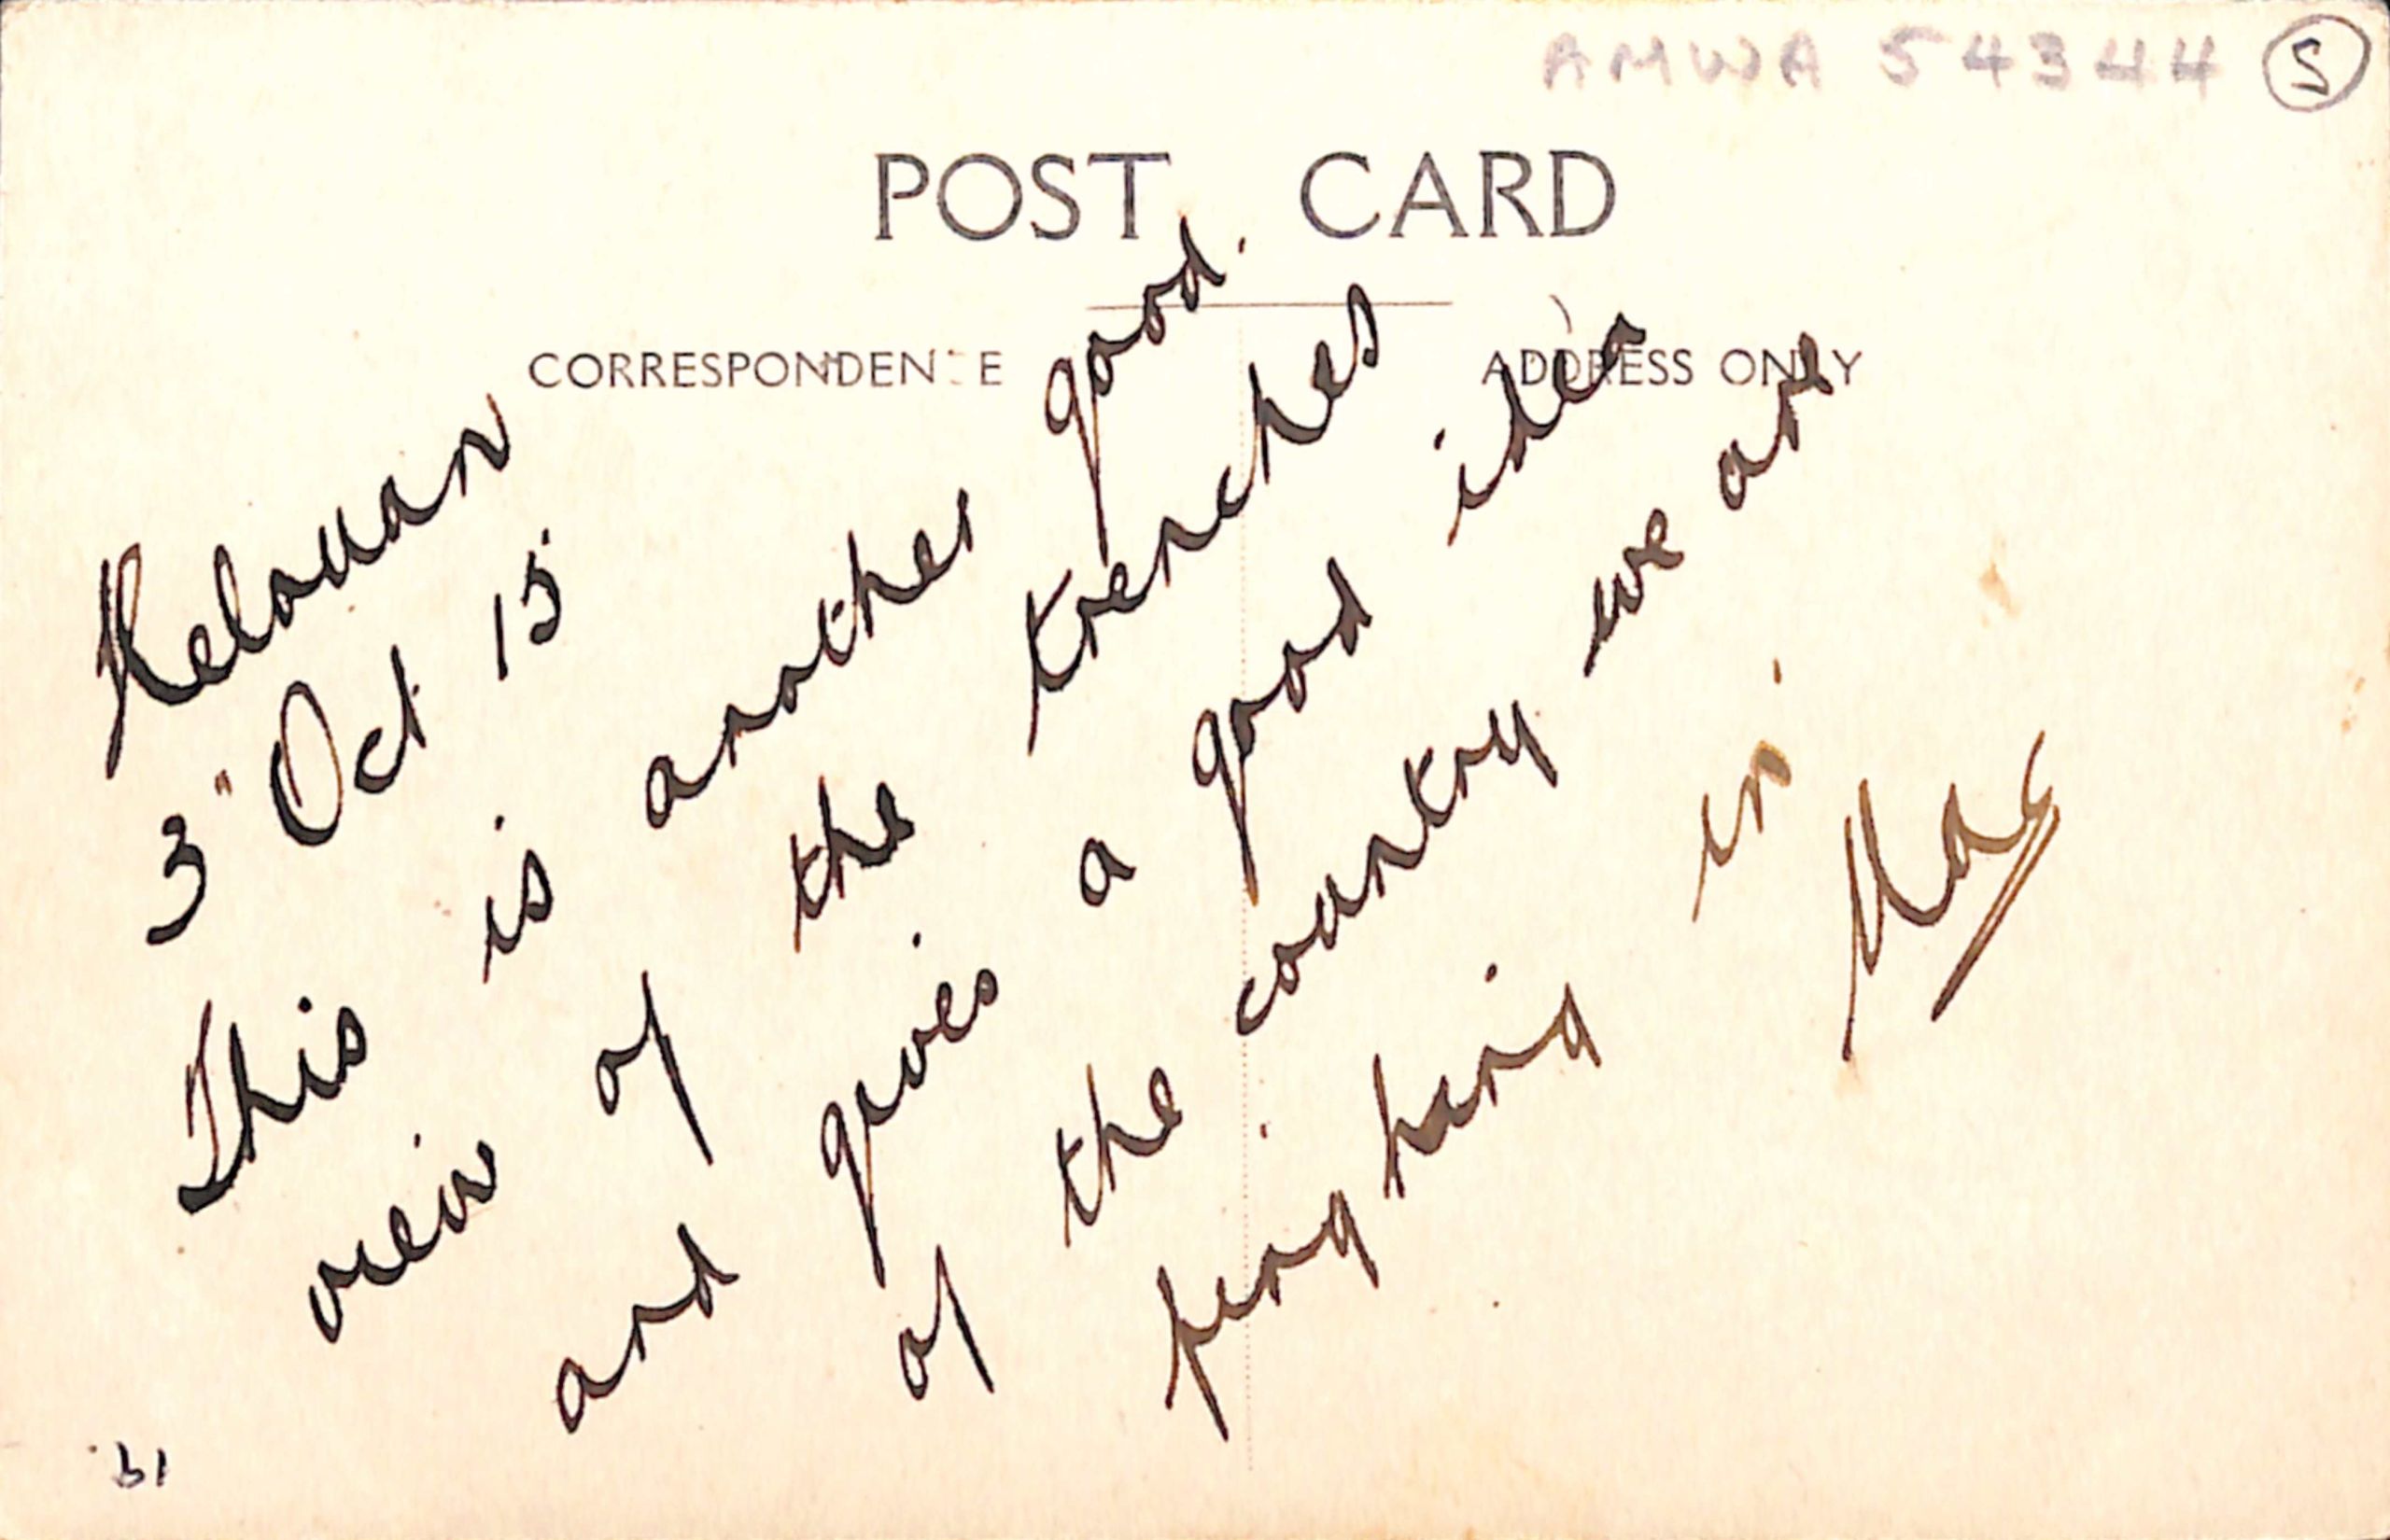 AMWA 54344 S
POST CARD
CORRESPONDENCE
ADDRESS ONLY
Helouan
3" Oct 15
This is another good
view of the trenches
and gives a good idea
of the country we are
in
Mac
b1